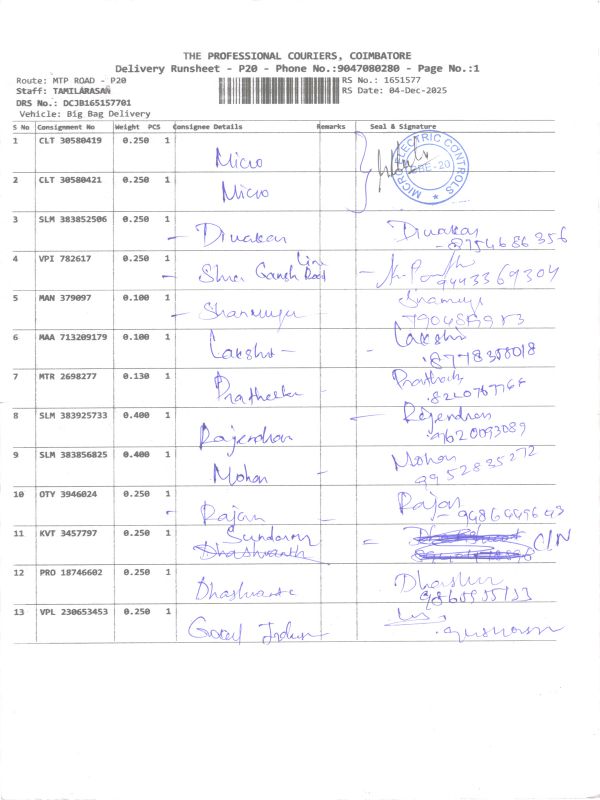 THE PROFESSIONAL COURIERS, COIMBATORE
Delivery Runsheet - P20 - Phone No.:9047080280 - Page No.:1
Route: MTP ROAD - P20 RS No.: 1651577
Staff: TAMILARASAN RS Date: 04-Dec-2025
DRS No.: DCJB165157701
Vehicle: Big Bag Delivery
S No Consignment No Weight PCS Consignee Details Remarks Seal & Signature
1 CLT 30580419 0.250 1 Micro
MICRO ELECTRIC CONTROLS
CBE-20
2 CLT 30580421 0.250 1 Micro
3 SLM 383852506 0.250 1 - Diwakar Diwakar
- 8754686356
4 VPI 782617 0.250 1 - Line
9443369304
5 MAN 379097 0.100 1 -
6 MAA 713209179 0.100 1 Lakshi - - Lakshi
8778358018
7 MTR 2698277 0.130 1
8 SLM 383925733 0.400 1 Rajendran - Rajendran
9620093089
9 SLM 383856825 0.400 1 Mohan - Mohan
9952835272
10 OTY 3946024 0.250 1 - Rajan - Rajan
11 KVT 3457797 0.250 1 Sundaram = C/N
Dhashwanth
12 PRO 18746602 0.250 1
13 VPL 230653453 0.250 1